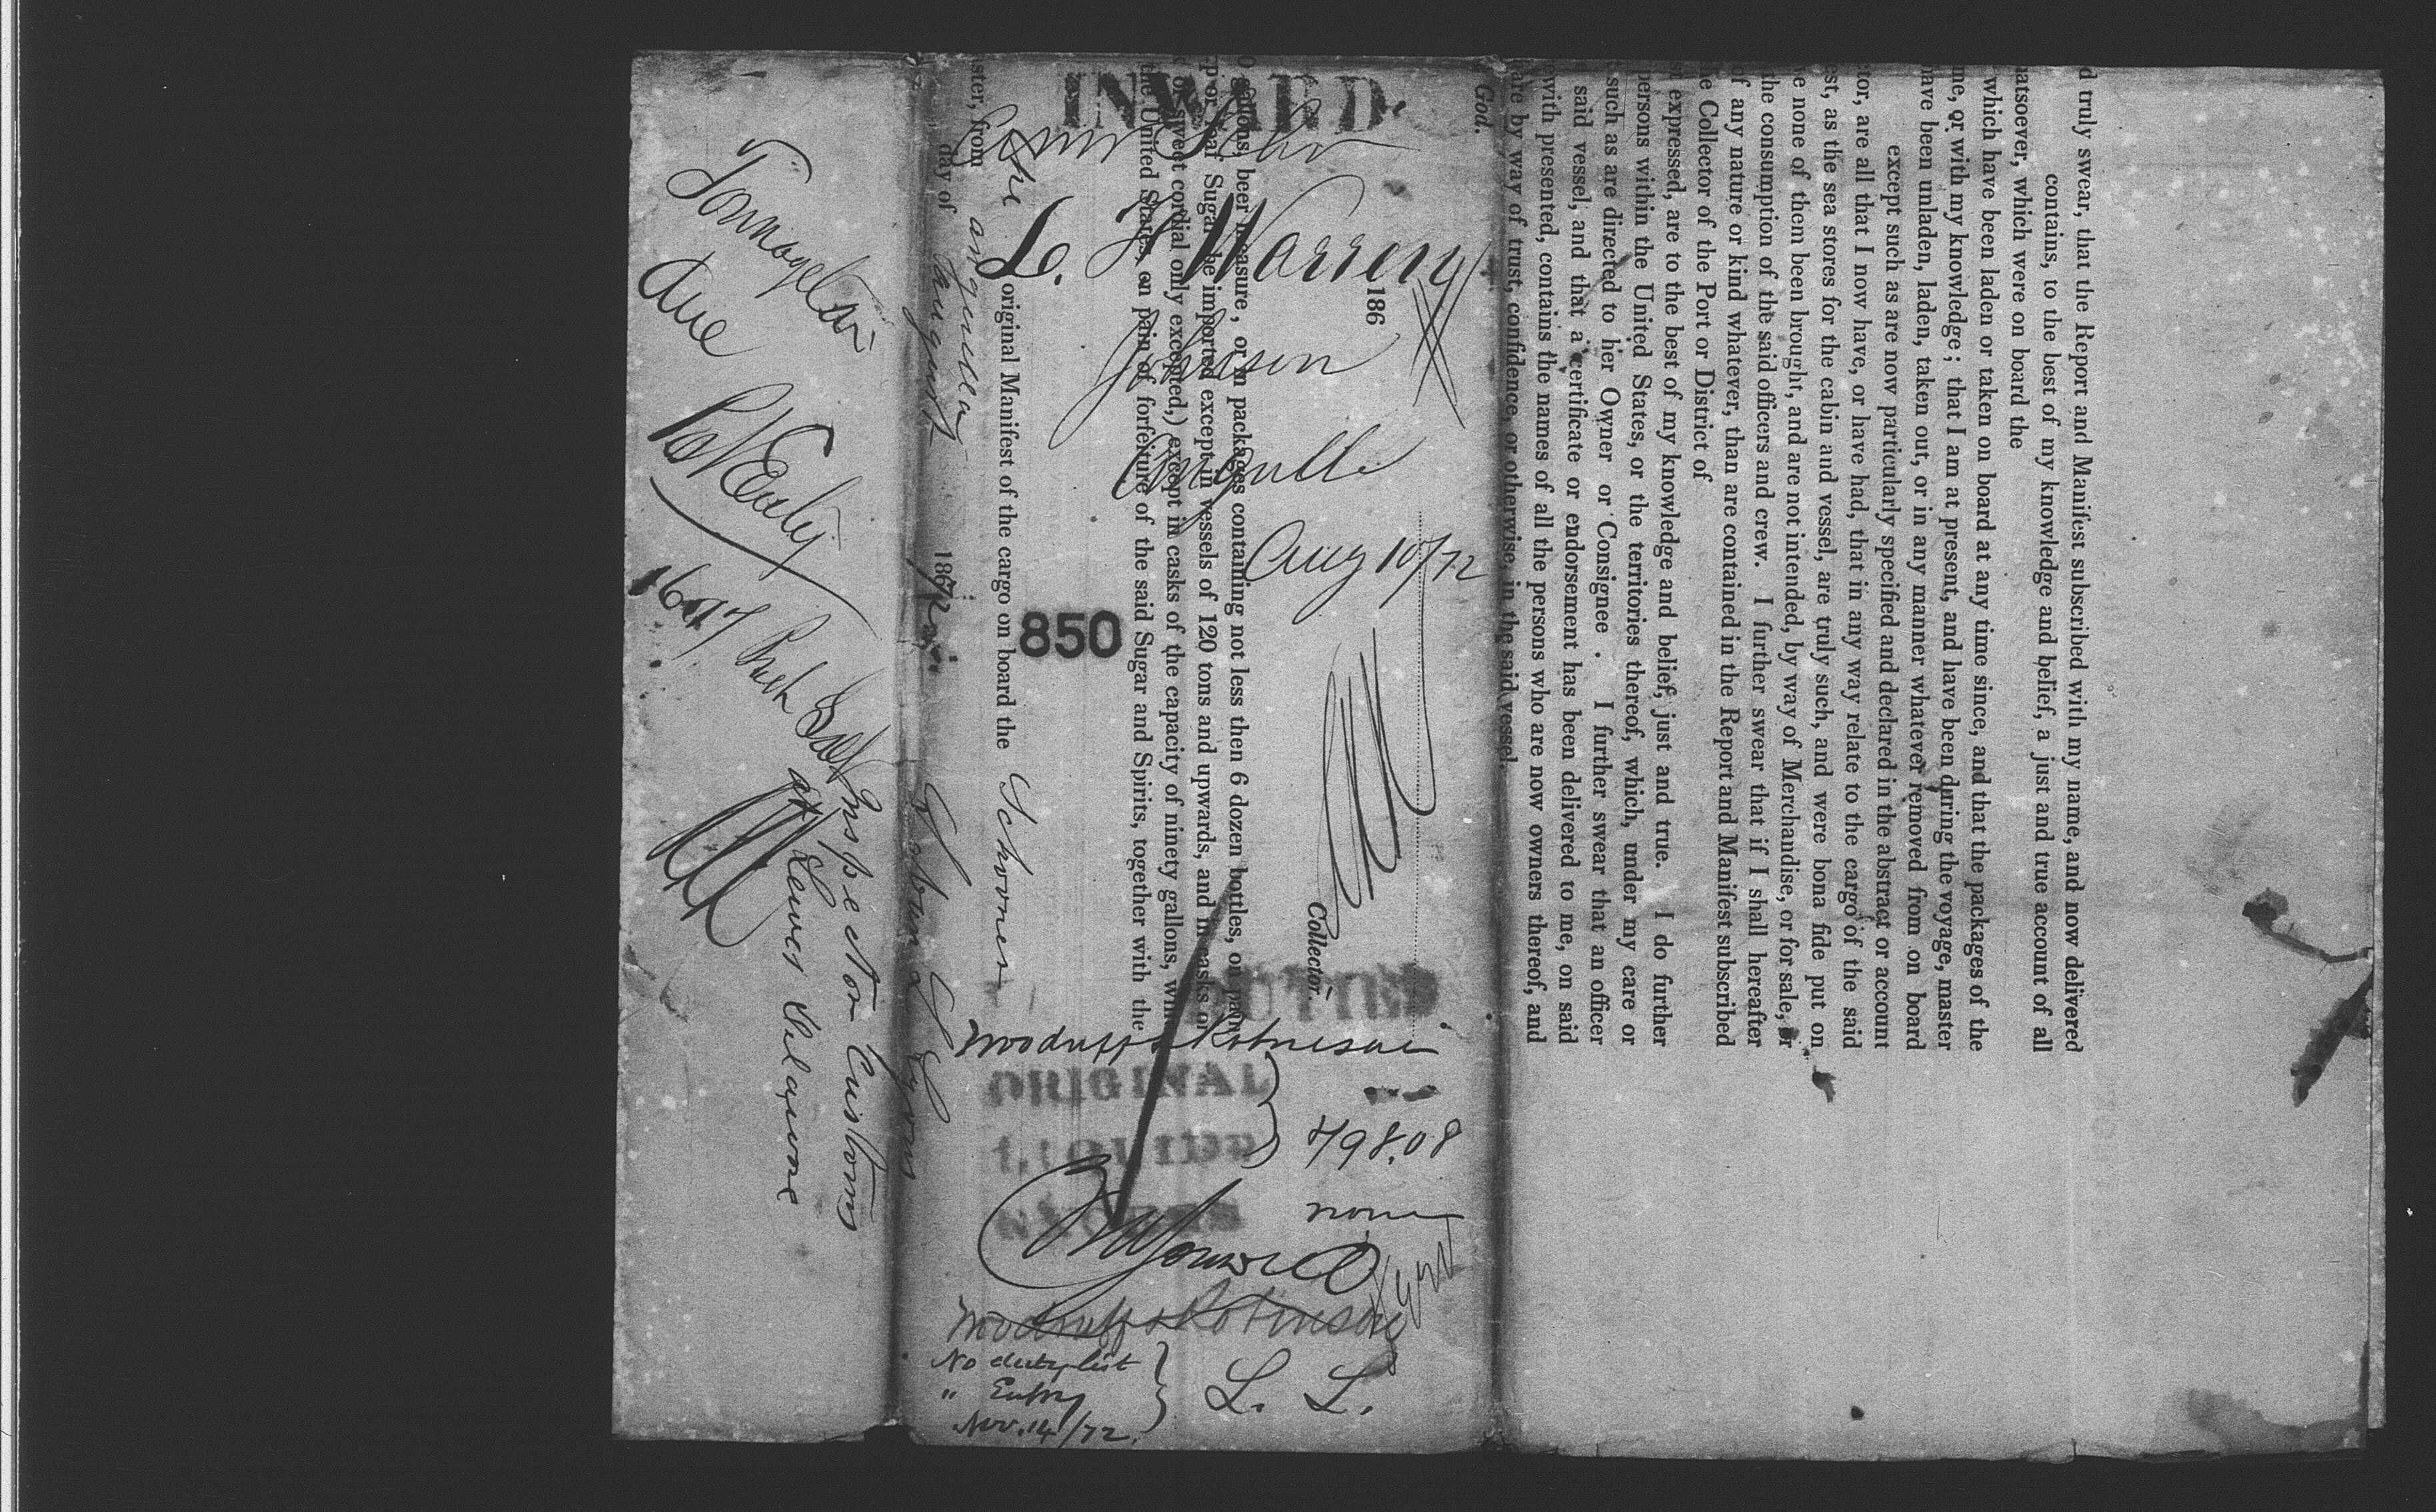 INWARD.
Am Schr
L. H Warren
186
Johnson
Anguilla
Aug 10/72
850
Collector.
DUTIES
Woodruff & Robinson
ORIGINAL
498.08
none
Woodruff & Robinson
No duty list
" Entry
Nov. 14/72.
L. L.
Tonnage tax
due
1697 Bush Salt
d truly swear, that the Report and Manifest subscribed with my name, and now delivered
contains, to the best of my knowledge and belief, a just and true account of all
atsoever, which were on board the
which have been laden or taken on board at any time since, and that the packages of the
me, or with my knowledge; that I am at present, and have been during the voyage, master
have been unladen, laden, taken out, or in any manner whatever removed from on board
except such as are now particularly specified and declared in the abstract or account
tor, are all that I now have, or have had, that in any way relate to the cargo of the said
est, as the sea stores for the cabin and vessel, are truly such, and were bona fide put on
e none of them been brought, and are not intended, by way of Merchandise, or for sale, or
the consumption of the said officers and crew. I further swear that if I shall hereafter
f any nature or kind whatever, than are contained in the Report and Manifest subscribed
e Collector of the Port or District of
st expressed, are to the best of my knowledge and belief, just and true. I do further
persons within the United States, or the territories thereof, which, under my care or
such as are directed to her Owner or Consignee. I further swear that an officer
said vessel, and that a certificate or endorsement has been delivered to me, on said
with presented, contains the names of all the persons who are now owners thereof, and
are by way of trust, confidence, or otherwise, in the said vessel.
God.
0 gallons, beer measure, or in packages containing not less then 6 dozen bottles, on pain
p or loaf Sugar be imported except in vessels of 120 tons and upwards, and in casks or
or sweet cordial only excepted,) except in casks of the capacity of ninety gallons, wine
the United States, on pain of forfeiture of the said Sugar and Spirits, together with the
the original Manifest of the cargo on board the Schooner
ster, from anguilla
day of August 1872
Inspector Customs
at Lewes Delaware